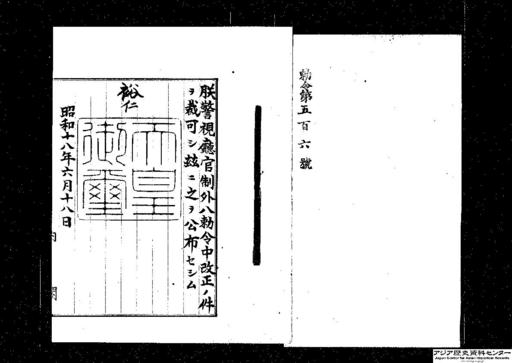 勅令第五百六號
朕警視廳官制外八勅令中改正ノ件
ヲ裁可シ玆ニ之ヲ公布セシム
裕仁
天皇御璽
昭和十八年六月十八日
内閣
アジア歴史資料センター
Japan Center for Asian Historical Records